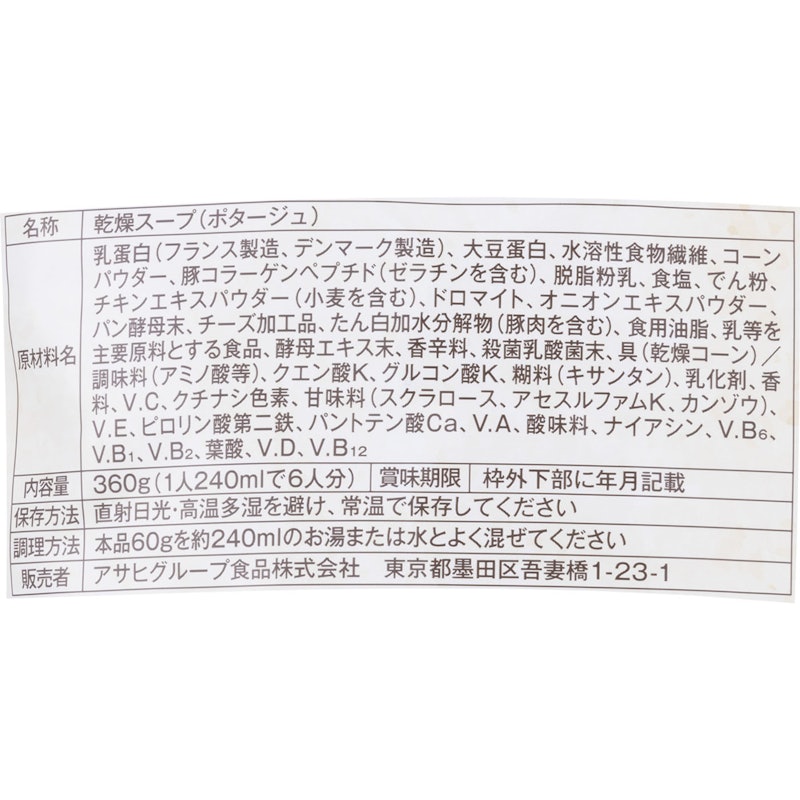 名称 乾燥スープ(ポタージュ)
原材料名 乳蛋白(フランス製造、デンマーク製造)、大豆蛋白、水溶性食物繊維、コーン
パウダー、豚コラーゲンペプチド(ゼラチンを含む)、脱脂粉乳、食塩、でん粉、
チキンエキスパウダー(小麦を含む)、ドロマイト、オニオンエキスパウダー、
パン酵母末、チーズ加工品、たん白加水分解物(豚肉を含む)、食用油脂、乳等を
主要原料とする食品、酵母エキス末、香辛料、殺菌乳酸菌末、具(乾燥コーン)/
調味料(アミノ酸等)、クエン酸K、グルコン酸K、糊料(キサンタン)、乳化剤、香
料、V.C、クチナシ色素、甘味料(スクラロース、アセスルファムK、カンゾウ)、
V.E、ピロリン酸第二鉄、パントテン酸Ca、V.A、酸味料、ナイアシン、V.B6、
V.B1、V.B2、葉酸、V.D、V.B12
内容量 360g(1人240mlで6人分) 賞味期限 枠外下部に年月記載
保存方法 直射日光・高温多湿を避け、常温で保存してください
調理方法 本品60gを約240mlのお湯または水とよく混ぜてください
販売者 アサヒグループ食品株式会社 東京都墨田区吾妻橋1-23-1